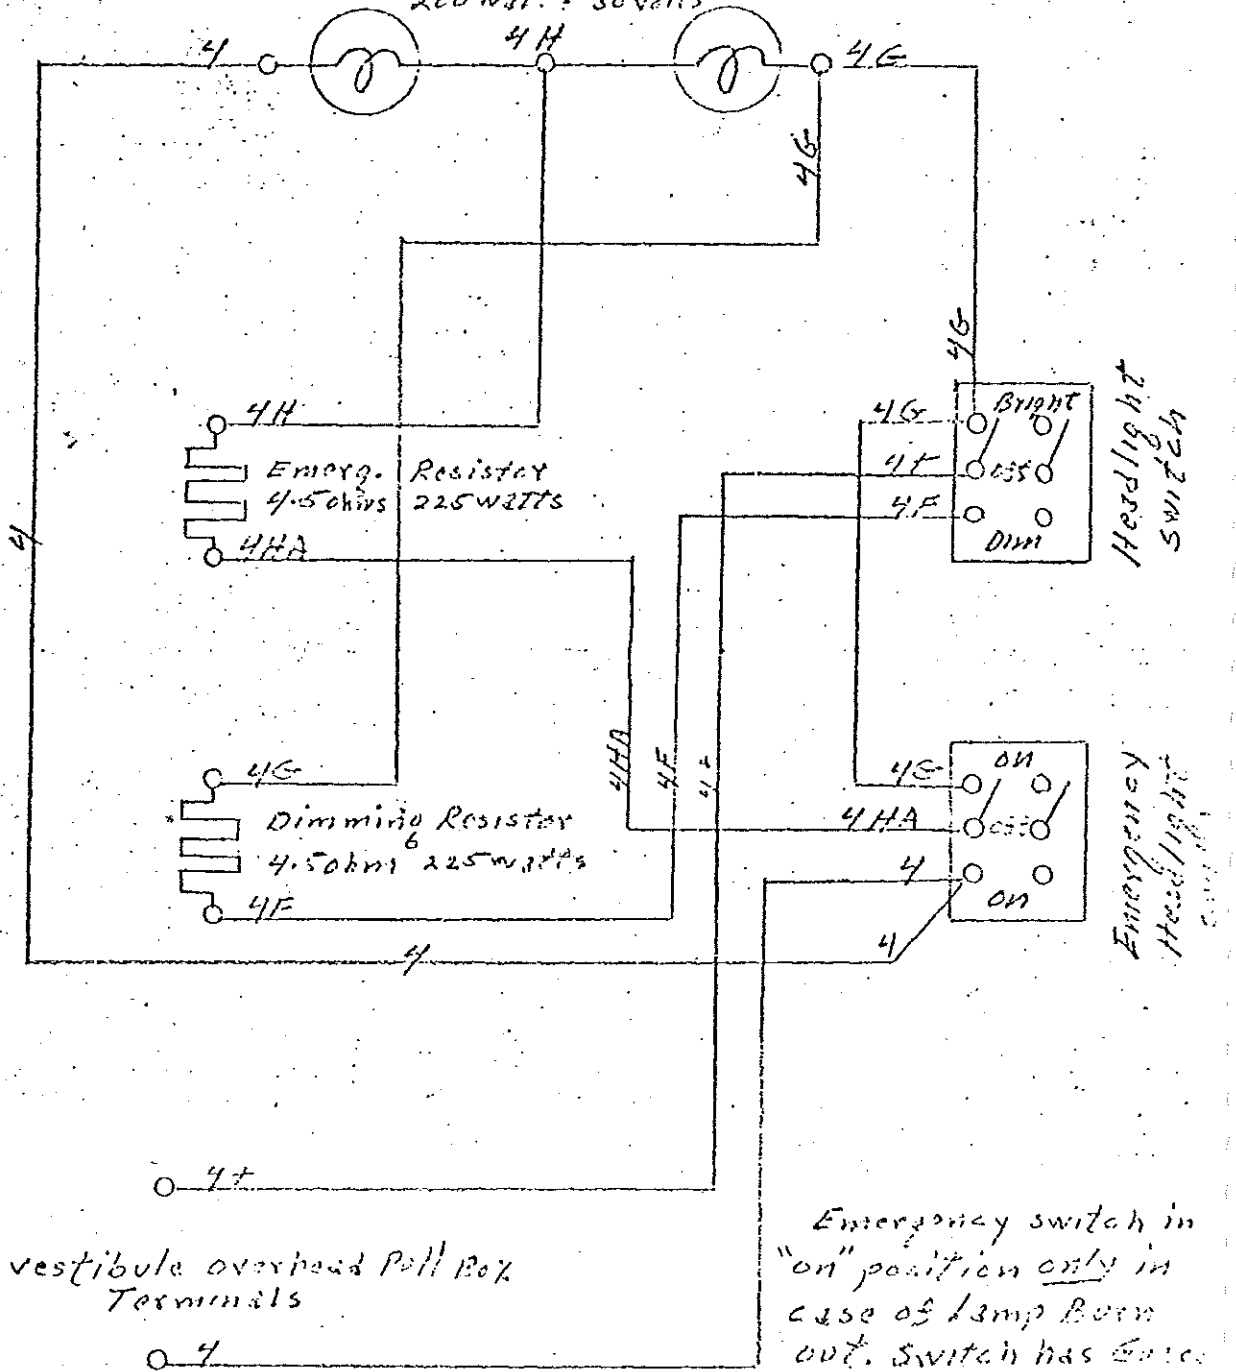 200 Wat. : 30 Volts
4
4H
4G
4G
4G
4H
Emerg. Resistor
4.5 ohms 225 watts
4HA
4
4G
4+
4F
Bright
off
Dim
Headlight
switch
4HA
4F
4+
4G
Dimming Resistor
6
4.5 ohms 225 watts
4F
4G
4HA
4
4
on
off
on
Emergency
Headlight
4
4+
vestibule overhead Pull Box
Terminals
4
Emergency switch in
"on" position only in
case of Lamp Burn
out. Switch has